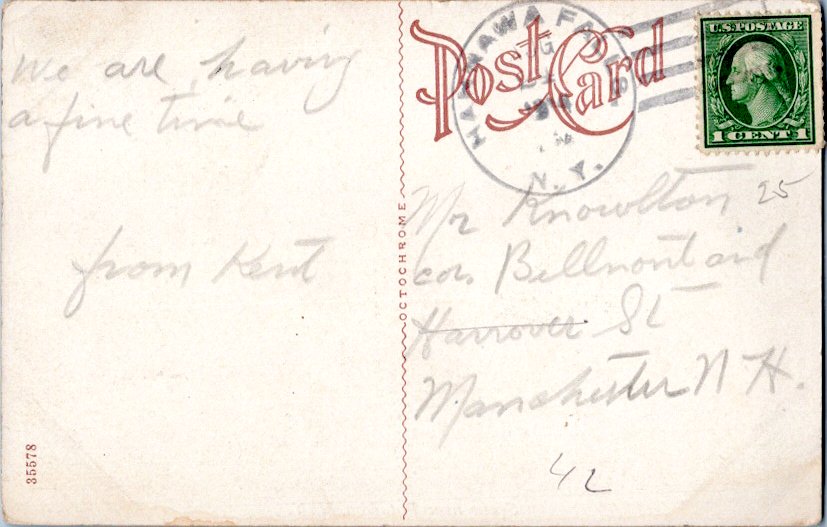 We are having
a fine time
from Kent
35578
OCTOCHROME
Post Card
N. Y.
U.S. POSTAGE
1 CENT 1
Mr Knowlton 25
cor. Bellmont and
Hanover St
Manchester N H.
42